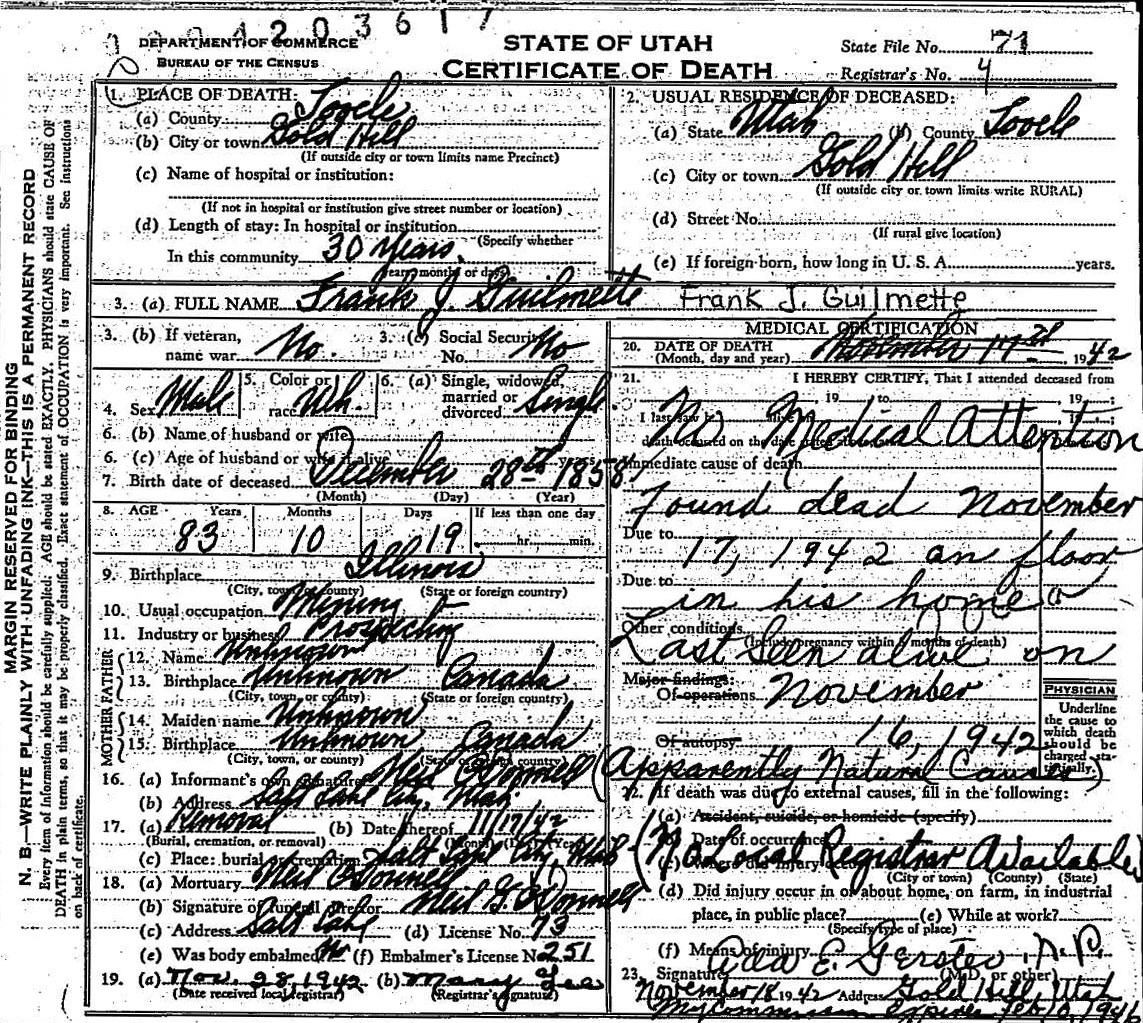 0004203617
DEPARTMENT OF COMMERCE
BUREAU OF THE CENSUS
STATE OF UTAH
CERTIFICATE OF DEATH
State File No. 71
Registrar's No. 4
MARGIN RESERVED FOR BINDING
N. B—WRITE PLAINLY WITH UNFADING INK—THIS IS A PERMANENT RECORD
Every item of information should be carefully supplied. AGE should be stated EXACTLY. PHYSICIANS should state CAUSE OF
DEATH in plain terms, so that it may be properly classified. Exact statement of OCCUPATION is very important. See instructions
on back of certificate.
1. PLACE OF DEATH:
(a) County Tooele
(b) City or town Gold Hill
(If outside city or town limits name Precinct)
(c) Name of hospital or institution:
(If not in hospital or institution give street number or location)
(d) Length of stay: In hospital or institution
(Specify whether
In this community 30 Years.
years, months or days)
2. USUAL RESIDENCE OF DECEASED:
(a) State Utah (b) County Tooele
(c) City or town Gold Hill
(If outside city or town limits write RURAL)
(d) Street No.
(If rural give location)
(e) If foreign born, how long in U. S. A. years.
3. (a) FULL NAME Frank J. Guilmette Frank J. Guilmette
3. (b) If veteran, name war No.
3. (c) Social Security No. No
4. Sex Male
5. Color or race Wh.
6. (a) Single, widowed, married or divorced Single
6. (b) Name of husband or wife
6. (c) Age of husband or wife if alive years
7. Birth date of deceased December 28th 1858
(Month) (Day) (Year)
8. AGE Years Months Days If less than one day
83 10 19 hr. min.
9. Birthplace Illinois
(City, town, or county) (State or foreign country)
10. Usual occupation Mining
11. Industry or business Prospecting
FATHER
12. Name Unknown
13. Birthplace Unknown Canada
(City, town, or county) (State or foreign country)
MOTHER
14. Maiden name Unknown
15. Birthplace Unknown Canada
(City, town, or county) (State or foreign country)
16. (a) Informant's own signature Neil O'Donnell
(b) Address Salt Lake City, Utah
17. (a) Removal (b) Date thereof 11/17/42
(Burial, cremation, or removal) (Month) (Day) (Year)
(c) Place: burial or cremation Salt Lake City, Utah
18. (a) Mortuary Neil O'Donnell
(b) Signature of funeral director Neil G. O'Donnell
(c) Address Salt Lake (d) License No. 73
(e) Was body embalmed (f) Embalmer's License No. 251
19. (a) Nov. 28, 1942 (b) Mary Lee
(Date received local registrar) (Registrar's signature)
MEDICAL CERTIFICATION
20. DATE OF DEATH
(Month, day and year) November 17th 1942
21. I HEREBY CERTIFY, That I attended deceased from
19 to 19 ;
I last saw h alive on 19 ;
death occurred on the date stated above
No Medical Attention
Immediate cause of death
Found dead November
Due to 17, 1942 on floor
Due to in his home
Other conditions
(Include pregnancy within 3 months of death)
Last seen alive on
Major findings:
Of operations November
Of autopsy 16, 1942
(Apparently Natural Causes)
PHYSICIAN
Underline
the cause to
which death
should be
charged sta-
tistically.
22. If death was due to external causes, fill in the following:
(a) Accident, suicide, or homicide (specify)
(b) Date of occurrence
(c) Where did injury occur?
(No Local Registrar Available)
(City or town) (County) (State)
(d) Did injury occur in or about home, on farm, in industrial
place, in public place? (e) While at work?
(Specify type of place)
(f) Means of injury
23. Signature E. Gerster, N.P.
(M.D. or other)
November 18 1942 Address Gold Hill, Utah
My Commission expires Feb. 10, 1946